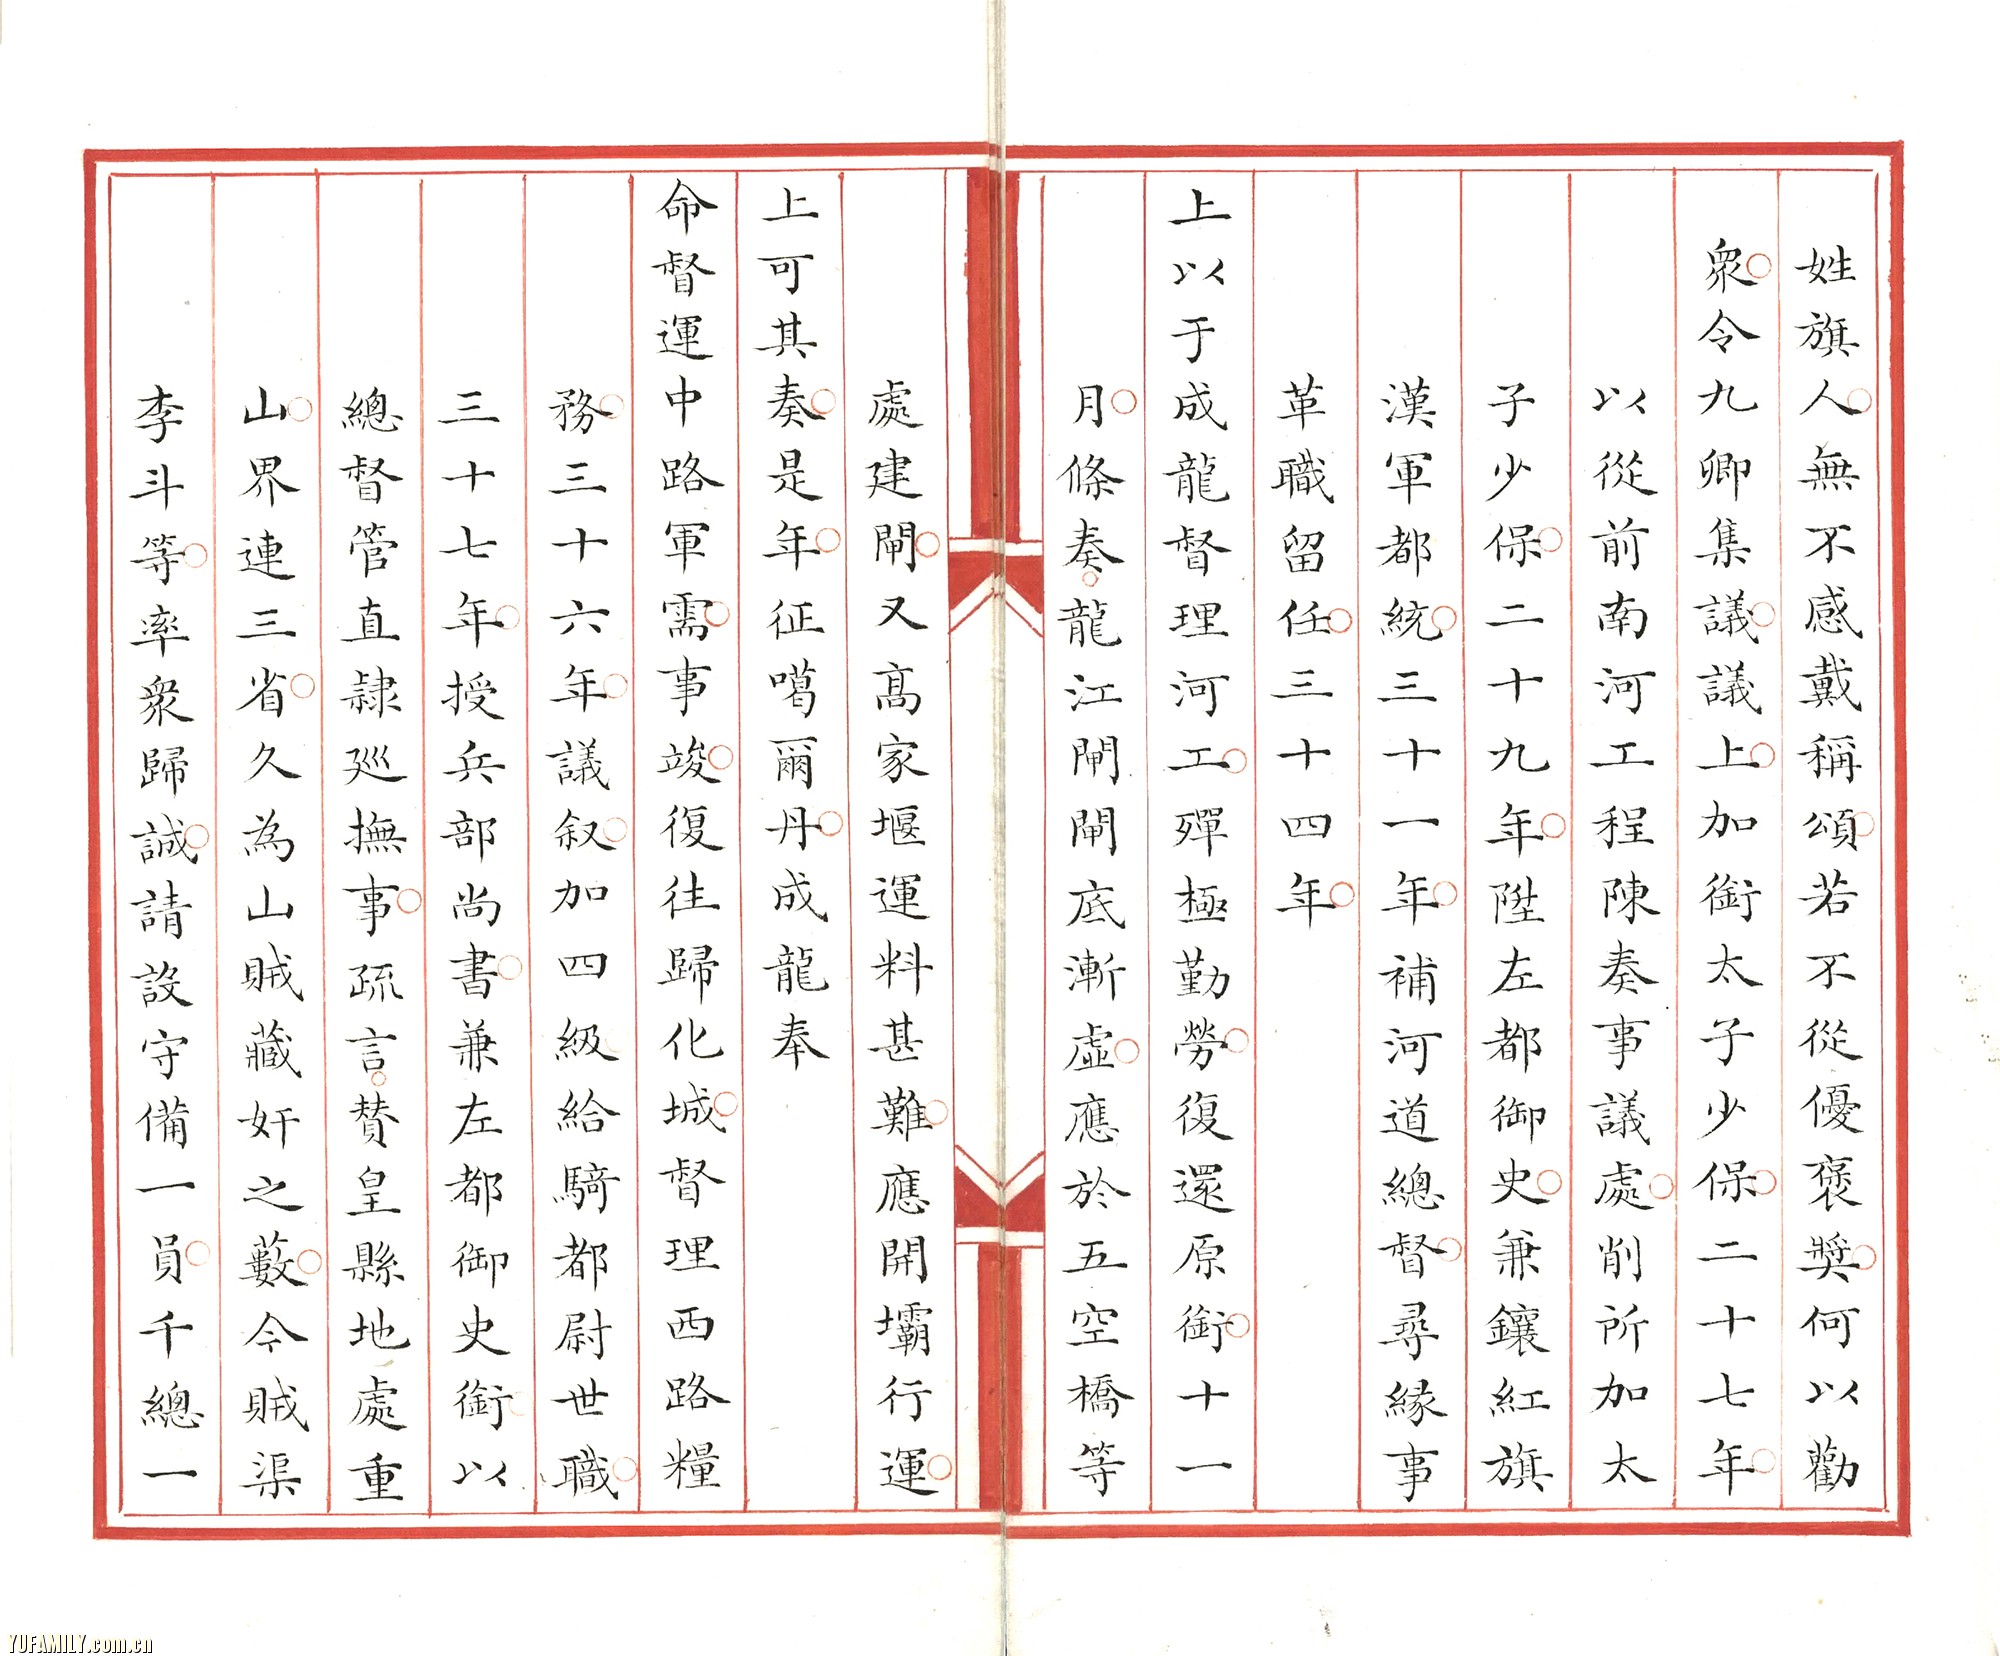 姓旗人無不感戴稱頌若不從優褒奬何以勸
衆令九卿集議議上加銜太子少保二十七年
以從前南河工程陳奏事議處削所加太
子少保二十九年陞左都御史兼鑲紅旗
漢軍都統三十一年補河道總督尋緣事
革職留任三十四年
上以于成龍督理河工殫極勤勞復還原銜十一
月條奏龍江閘閘底漸虛應於五空橋等
處建閘又高家堰運料甚難應開壩行運
上可其奏是年征噶爾丹成龍奉
命督運中路軍需事竣復往歸化城督理西路糧
務三十六年議叙加四級給騎都尉世職
三十七年授兵部尚書兼左都御史銜以
總督管直隸廵撫事疏言贊皇縣地處重
山界連三省久為山賊藏奸之藪今賊渠
李斗等率衆歸誠請設守備一員千總一
YUFAMILY.com.cn